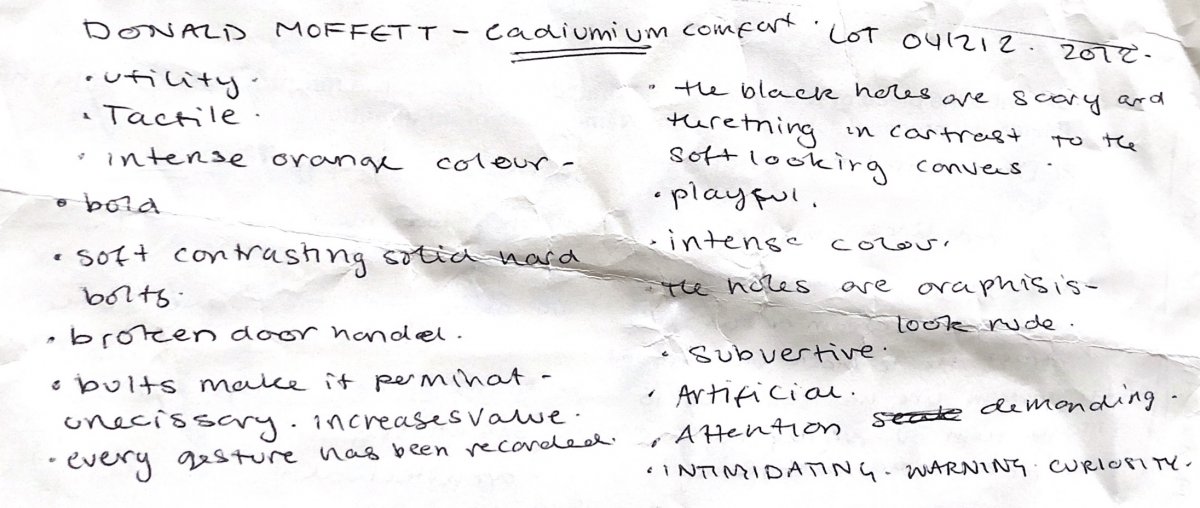 DONALD MOFFETT - Cadiumium comfort. LOT 041212. 2012.
• utility.
• Tactile.
• intense orange colour -
• bold
• soft contrasting solid hard
bolts.
• broken door handel.
• bults make it perminat -
unecissary. increases value.
• every gesture has been recorded.
• the black holes are scary and
thretning in cartrast to the
soft looking canves.
• playful.
• intense colour.
• the holes are oraphisis -
look rude.
• subvertive.
• Artificial.
• Attention demanding.
• INTIMIDATING. WARNING. CURIOSITY.